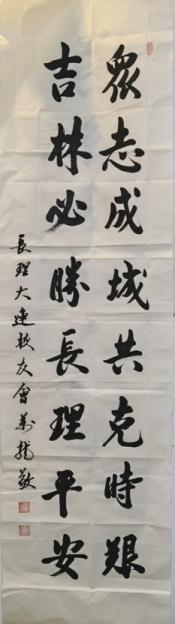 眾志成城共克時艱
吉林必勝長理平安
長理大連校友會姜龍敬